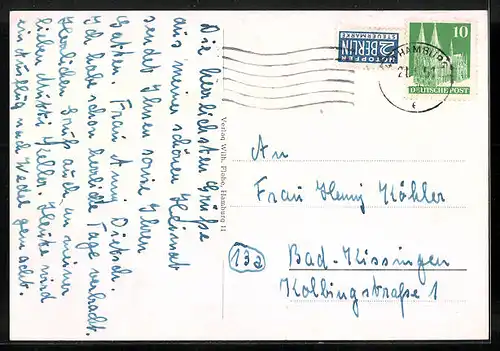 Die herzlichsten Grüße
aus meiner schönen Heimat
sendet Ihnen sowie Ihrem
Gatten. Frau Anny Dietsch.
Ich habe schon herrliche Tage verbracht.
Herzlichen Gruß auch an meine
lieben Mutti Keller. Heute wird
ein Ausflug nach Wedel gemacht.
Verlag Wilh. Hamburg 11
NOTOPFER
2 BERLIN
STEUERMARKE
HAMBURG
10
DEUTSCHE POST
An
Frau Henny Köhler
(13a)
Bad-Kissingen
Kolbingstraße 1